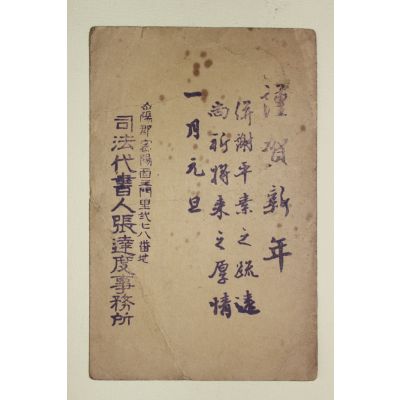 謹賀新年
併謝平素之疏遠
尚祈將来之厚情
一月元旦
密陽郡密陽面三門里弐七八番地
司法代書人張達度事務所